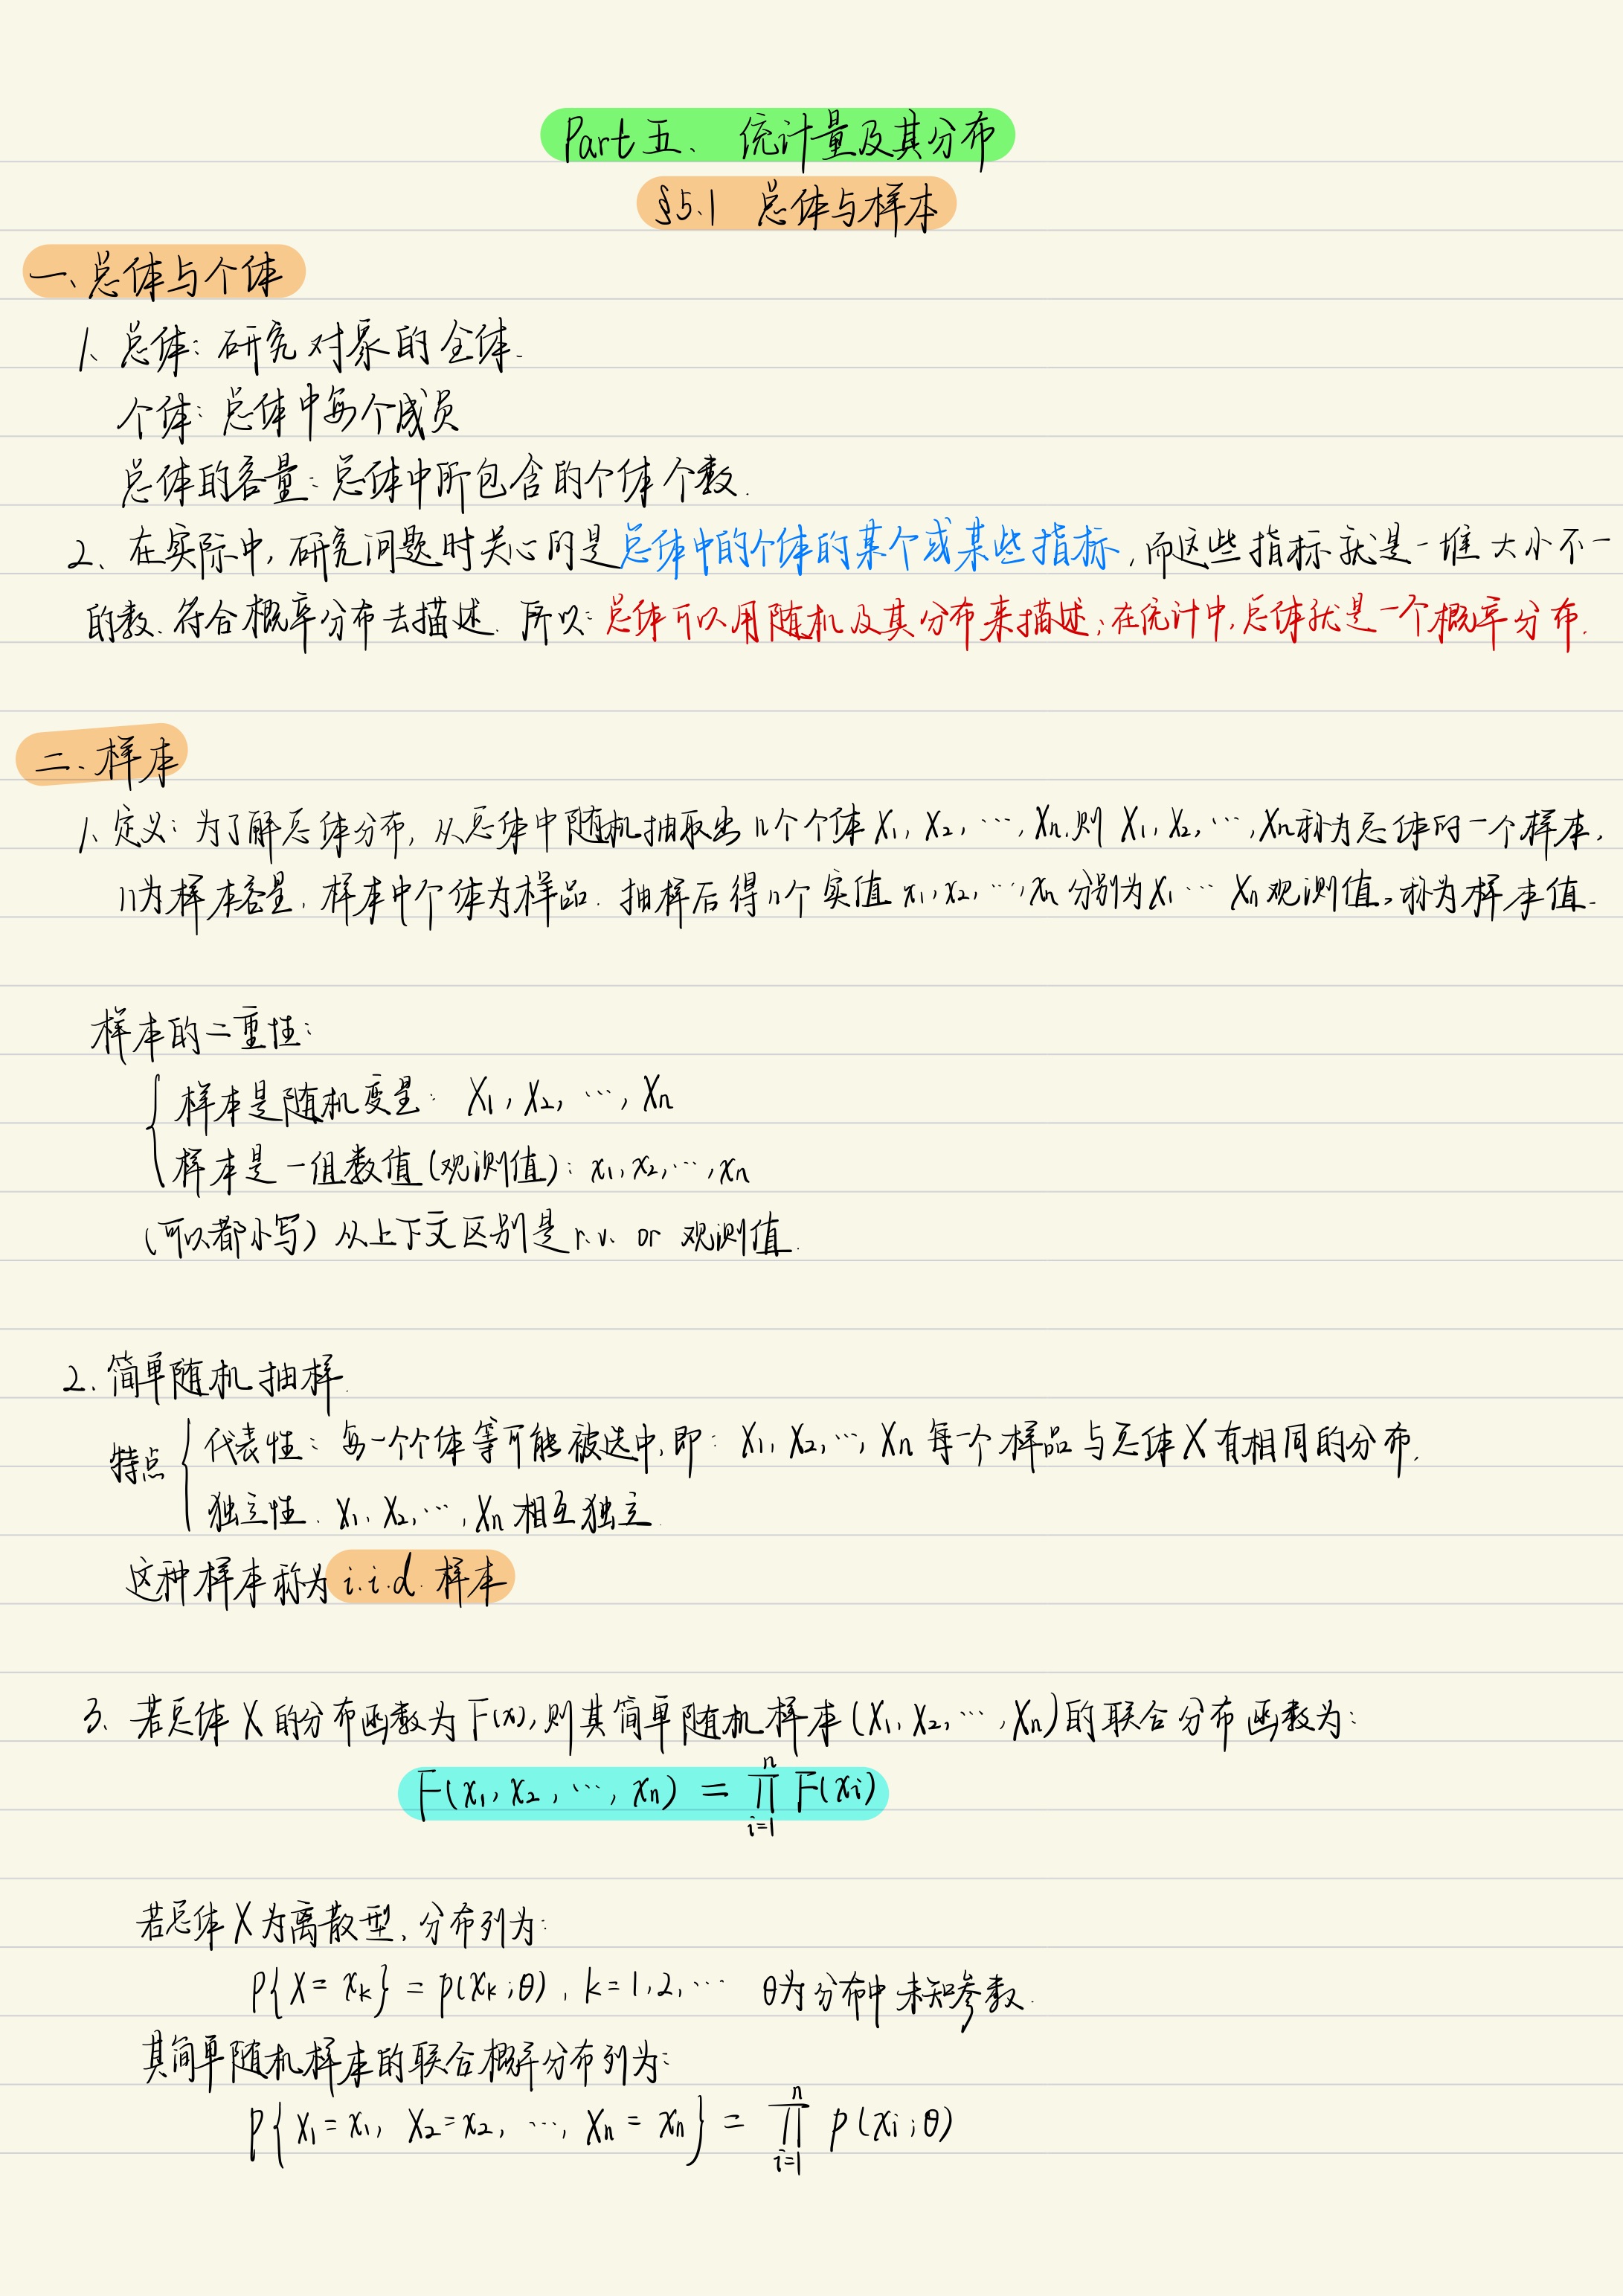 Part五、 统计量及其分布
§5.1 总体与样本
一、总体与个体
1、总体：研究对象的全体.
个体：总体中每个成员
总体的容量：总体中所包含的个体个数.
2、在实际中, 研究问题时关心的是总体中的个体的某个或某些指标, 而这些指标就是一堆大小不一
的数. 符合概率分布去描述. 所以: 总体可以用随机及其分布来描述; 在统计中, 总体就是一个概率分布.
二、样本
1、定义: 为了解总体分布, 从总体中随机抽取出 n个个体 X₁, X₂, ⋯, Xn. 则 X₁, X₂, ⋯, Xn 称为总体的一个样本,
n为样本容量, 样本中个体为样品. 抽样后得n个实值 x₁, x₂, ⋯, xn 分别为X₁ ⋯ Xn 观测值, 称为样本值.
样本的二重性:
样本是随机变量: X₁, X₂, ⋯, Xn
样本是一组数值(观测值): x₁, x₂, ⋯, xn
(可以都小写) 从上下文区别是 r.v. or 观测值.
2. 简单随机抽样.
特点 { 代表性: 每一个个体等可能被选中, 即: X₁, X₂, ⋯, Xn 每一个样品与总体X有相同的分布.
独立性. X₁, X₂, ⋯, Xn 相互独立.
这种样本称为 i.i.d. 样本
3、若总体 X 的分布函数为 F(x), 则其简单随机样本 (X₁, X₂, ⋯, Xn) 的联合分布函数为:
F(x₁, x₂, ⋯, xn) = ∏ⁿᵢ₌₁ F(xi)
若总体 X 为离散型, 分布列为:
P{X = xk} = p(xk; θ), k = 1, 2, ⋯ θ为分布中未知参数.
其简单随机样本的联合概率分布列为:
P{X₁ = x₁, X₂ = x₂, ⋯, Xn = xn} = ∏ⁿᵢ₌₁ p(xi; θ)